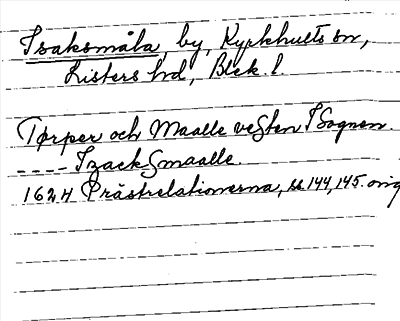 Isaksmåla, by, Kyrkhults sn,
Listers hd, Blek. l.
Tørper och Maalle vesten I Sognen.
---- IzackSmaalle.
1624 Prästrelationerna, ss. 144, 145. orig